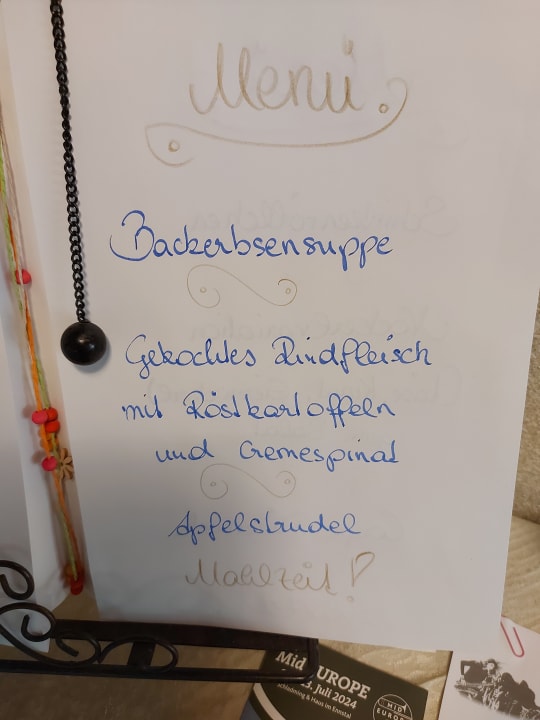 Menü
Backerbsensuppe
Gekochtes Rindfleisch
mit Röstkartoffeln
und Cremespinat
Apfelstrudel
Mahlzeit!
Mid EUROPE
13. Juli 2024
Schladming & Haus im Ennstal
MID
EUROPE